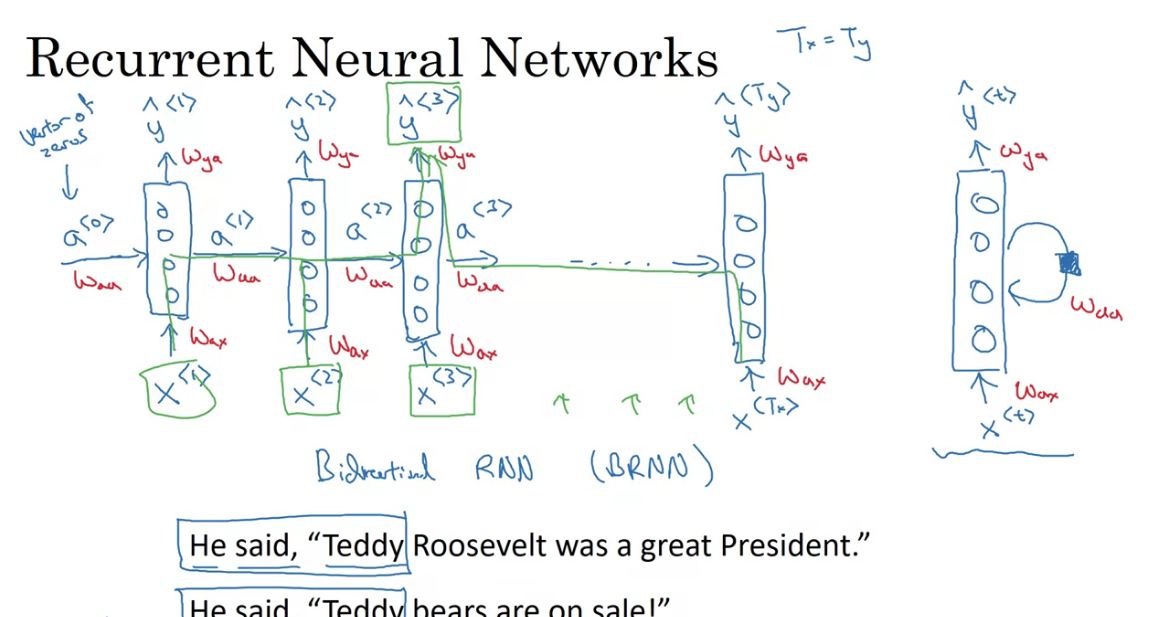 Recurrent Neural Networks
Tx = Ty
vector of zeros
ŷ<1> ŷ<2> ŷ<3> ŷ<Ty> ŷ<t>
Wya Wya Wya Wya Wya
a<0> a<1> a<2> a<3> - . . . . .
Waa Waa Waa Waa Waa
Wax Wax Wax Wax Wax
x<1> x<2> x<3> x<Tx> x<t>
Bidirectional RNN (BRNN)
He said, “Teddy Roosevelt was a great President.”
He said, “Teddy bears are on sale!”